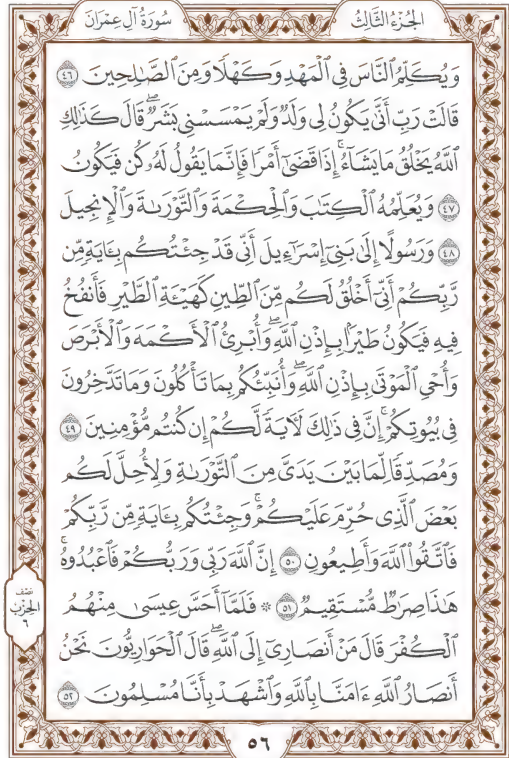 الجُزْءُ الثَّالِثُ
سُورَةُ آلِ عِمْرَانَ
وَيُكَلِّمُ النَّاسَ فِي الْمَهْدِ وَكَهْلًا وَمِنَ الصَّٰلِحِينَ ٤٦
قَالَتْ رَبِّ أَنَّىٰ يَكُونُ لِي وَلَدٌ وَلَمْ يَمْسَسْنِي بَشَرٌ ۖ قَالَ كَذَٰلِكِ
اللَّهُ يَخْلُقُ مَا يَشَآءُ ۚ إِذَا قَضَىٰٓ أَمْرًا فَإِنَّمَا يَقُولُ لَهُۥ كُن فَيَكُونُ
٤٧ وَيُعَلِّمُهُ الْكِتَٰبَ وَالْحِكْمَةَ وَالتَّوْرَىٰةَ وَالْإِنجِيلَ
٤٨ وَرَسُولًا إِلَىٰ بَنِىٓ إِسْرَٰٓءِيلَ أَنِّى قَدْ جِئْتُكُم بِـَٔايَةٍ مِّن
رَّبِّكُمْ أَنِّىٓ أَخْلُقُ لَكُم مِّنَ الطِّينِ كَهَيْـَٔةِ الطَّيْرِ فَأَنفُخُ
فِيهِ فَيَكُونُ طَيْرًۢا بِإِذْنِ اللَّهِ ۖ وَأُبْرِئُ الْأَكْمَهَ وَالْأَبْرَصَ
وَأُحْىِ الْمَوْتَىٰ بِإِذْنِ اللَّهِ ۖ وَأُنَبِّئُكُم بِمَا تَأْكُلُونَ وَمَا تَدَّخِرُونَ
فِى بُيُوتِكُمْ ۚ إِنَّ فِى ذَٰلِكَ لَـَٔايَةً لَّكُمْ إِن كُنتُم مُّؤْمِنِينَ ٤٩
وَمُصَدِّقًا لِّمَا بَيْنَ يَدَىَّ مِنَ التَّوْرَىٰةِ وَلِأُحِلَّ لَكُم
بَعْضَ الَّذِى حُرِّمَ عَلَيْكُمْ ۚ وَجِئْتُكُم بِـَٔايَةٍ مِّن رَّبِّكُمْ
فَاتَّقُوا۟ اللَّهَ وَأَطِيعُونِ ٥٠ إِنَّ اللَّهَ رَبِّى وَرَبُّكُمْ فَاعْبُدُوهُ ۗ
هَٰذَا صِرَٰطٌ مُّسْتَقِيمٌ ٥١ ۞ فَلَمَّآ أَحَسَّ عِيسَىٰ مِنْهُمُ
الْكُفْرَ قَالَ مَنْ أَنصَارِىٓ إِلَى اللَّهِ ۖ قَالَ الْحَوَارِيُّونَ نَحْنُ
أَنصَارُ اللَّهِ ءَامَنَّا بِاللَّهِ وَاشْهَدْ بِأَنَّا مُسْلِمُونَ ٥٢
نصف
الحزب
٦
٥٦